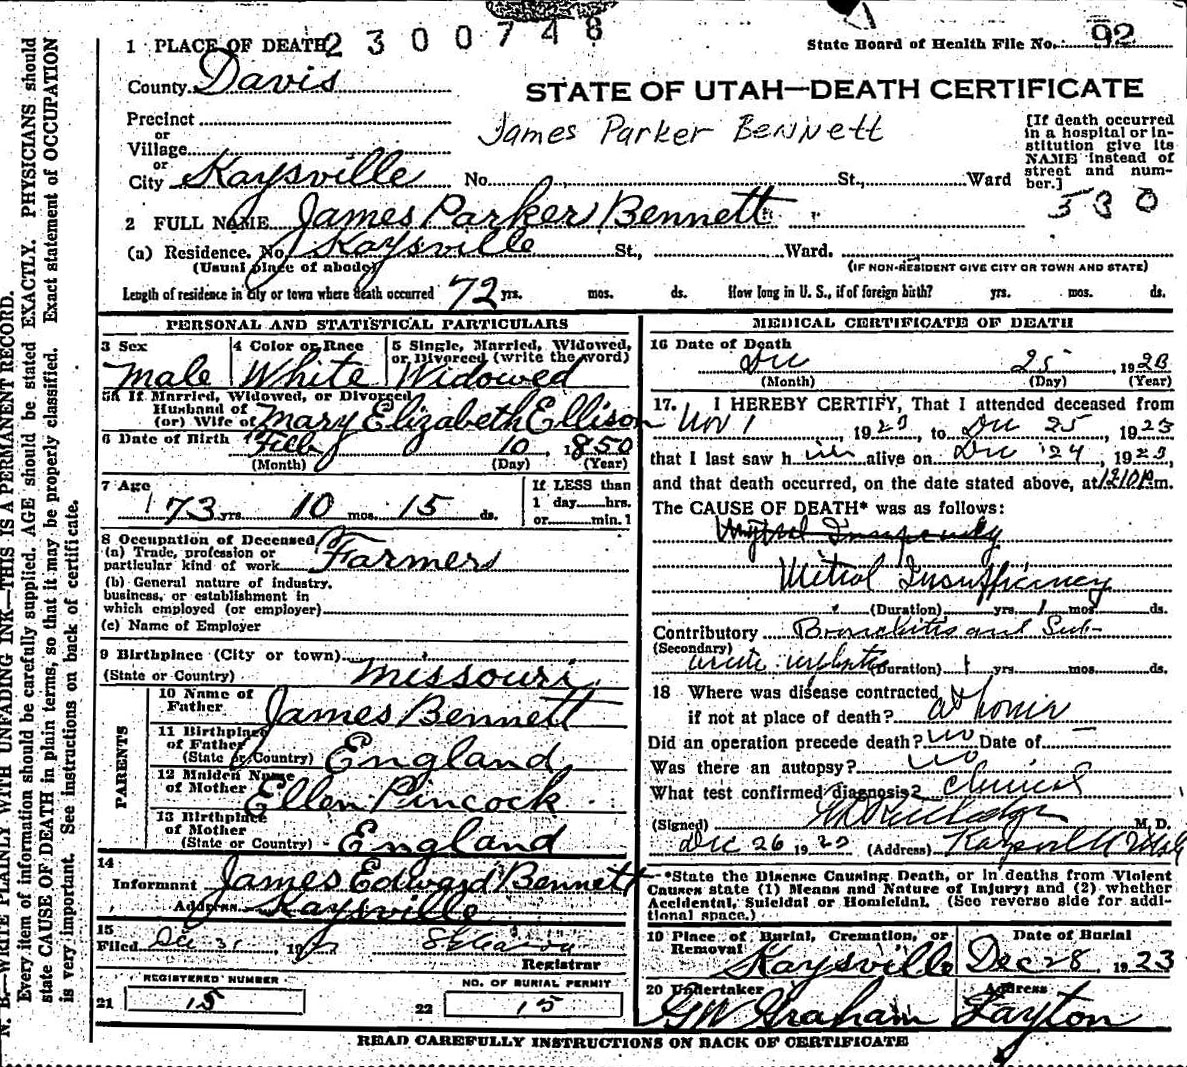 2300748
1 PLACE OF DEATH
State Board of Health File No. 92
County Davis
STATE OF UTAH—DEATH CERTIFICATE
Precinct
or
Village
or
City Kaysville No. St., Ward
James Parker Bennett
[If death occurred
in a hospital or in-
stitution give its
NAME instead of
street and num-
ber.]
530
2 FULL NAME James Parker Bennett
(a) Residence. No. Kaysville St., Ward.
(Usual place of abode) (IF NON-RESIDENT GIVE CITY OR TOWN AND STATE)
Length of residence in city or town where death occurred 72 yrs. mos. ds. How long in U. S., if of foreign birth? yrs. mos. ds.
PERSONAL AND STATISTICAL PARTICULARS
3 Sex
Male
4 Color or Race
White
5 Single, Married, Widowed,
or Divorced (write the word)
Widowed
5a If Married, Widowed, or Divorced
Husband of
(or) Wife of Mary Elizabeth Ellison
6 Date of Birth Feb 10, 1850
(Month) (Day) (Year)
7 Age
73 yrs. 10 mos. 15 ds.
If LESS than
1 day hrs.
or min.
8 Occupation of Deceased
(a) Trade, profession or
particular kind of work Farmer
(b) General nature of industry.
business, or establishment in
which employed (or employer)
(c) Name of Employer
9 Birthplace (City or town)
(State or Country) Missouri
PARENTS
10 Name of
Father James Bennett
11 Birthplace
of Father
(State or Country) England
12 Maiden Name
of Mother Ellen Pincock
13 Birthplace
of Mother
(State or Country) England
14
Informant James Edward Bennett
Address Kaysville
15
Filed Dec 31, 19
Registrar
REGISTERED NUMBER
21 15
NO. OF BURIAL PERMIT
22 15
MEDICAL CERTIFICATE OF DEATH
16 Date of Death
Dec 25, 1923
(Month) (Day) (Year)
17. I HEREBY CERTIFY, That I attended deceased from
Nov 1, 1923, to Dec 25, 1923
that I last saw h im alive on Dec 24, 1923,
and that death occurred, on the date stated above, at 1210 P.m.
The CAUSE OF DEATH* was as follows:
Mitral Insufficiency
(Duration) yrs. 1 mos. ds.
Contributory Bronchitis and Sub-
(Secondary) acute nephritis (Duration) 1 yrs. mos. ds.
18 Where was disease contracted
if not at place of death? at home
Did an operation precede death? no Date of —
Was there an autopsy? no
What test confirmed diagnosis? Clinical
(Signed) M. D.
Dec 26 1923 (Address) Kaysville Utah
*State the Disease Causing Death, or in deaths from Violent
Causes state (1) Means and Nature of Injury; and (2) whether
Accidental, Suicidal or Homicidal. (See reverse side for addi-
tional space.)
19 Place of Burial, Cremation, or
Removal Kaysville
Date of Burial
Dec 28, 1923
20 Undertaker
GW Graham
Address
Layton
READ CAREFULLY INSTRUCTIONS ON BACK OF CERTIFICATE
N. B.—WRITE PLAINLY WITH UNFADING INK—THIS IS A PERMANENT RECORD.
Every item of information should be carefully supplied. AGE should be stated EXACTLY. PHYSICIANS should
state CAUSE OF DEATH in plain terms, so that it may be properly classified. Exact statement of OCCUPATION
is very important. See instructions on back of certificate.